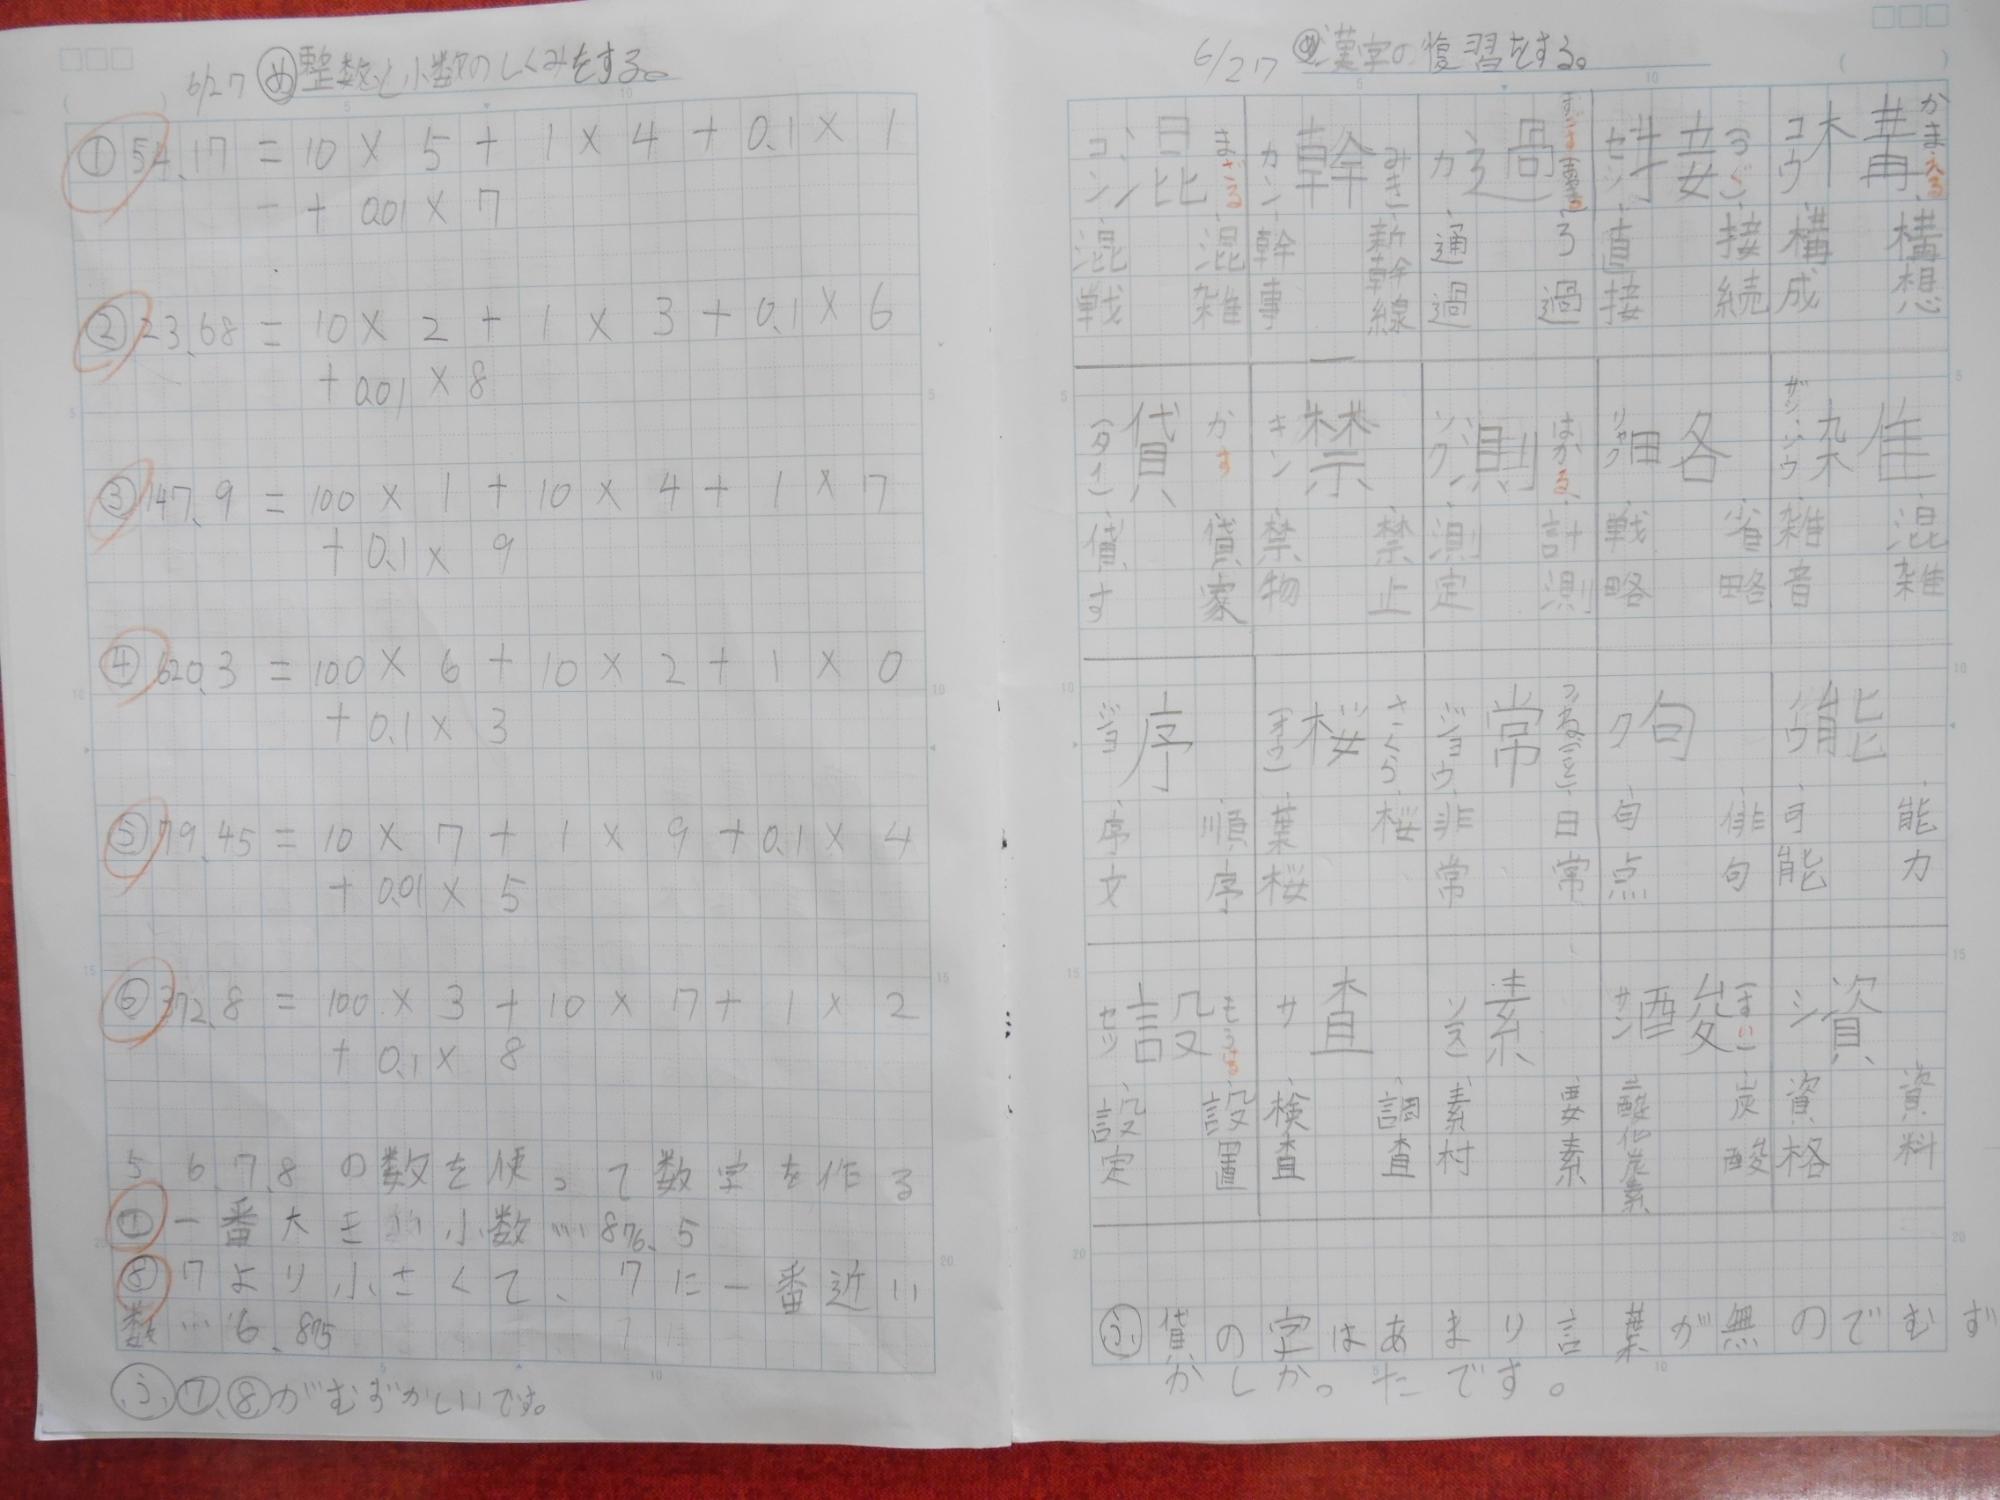 6/27 ㋱整数と小数のしくみをする。
① 54.17 = 10 × 5 + 1 × 4 + 0.1 × 1
+ 0.01 × 7
② 23.68 = 10 × 2 + 1 × 3 + 0.1 × 6
+ 0.01 × 8
③ 147.9 = 100 × 1 + 10 × 4 + 1 × 7
+ 0.1 × 9
④ 620.3 = 100 × 6 + 10 × 2 + 1 × 0
+ 0.1 × 3
⑤ 79.45 = 10 × 7 + 1 × 9 + 0.1 × 4
+ 0.01 × 5
⑥ 372.8 = 100 × 3 + 10 × 7 + 1 × 2
+ 0.1 × 8
5、6、7、8の数を使って数字を作る
⑦一番大きい小数…876.5
⑧7より小さくて、7に一番近い
数…6.875
㋫⑦、⑧がむずかしいです。
6/27 ㋱漢字の復習をする。
かまえる 構 コウ 構想 構成
(つぐ) 接 セツ 接続 直接
すぎる 過 カ 過 通過
みき 幹 カン 新幹線 幹事
まざる 混 コン 混雑 混戦
雑 ザツ・ゾウ 混雑 雑音
略 リャク 省略 戦略
はかる 測 ソク 計測 測定
禁 キン 禁止 禁物
かす 貸 (タイ) 貸家 貸す
能 ノウ 能力 可能
句 ク 俳句 句点
つね(とこ) 常 ジョウ 日常 非常
さくら 桜 (オウ) 桜 葉桜
序 ジョ 順序 序文
資 シ 資料 資格
(すい) 酸 サン 炭酸 二酸化炭素
素 ソ(ス) 要素 素材
査 サ 調査 検査
もうける 設 セツ 設置 設定
㋫貸の字はあまり言葉が無のでむず
かしかったです。